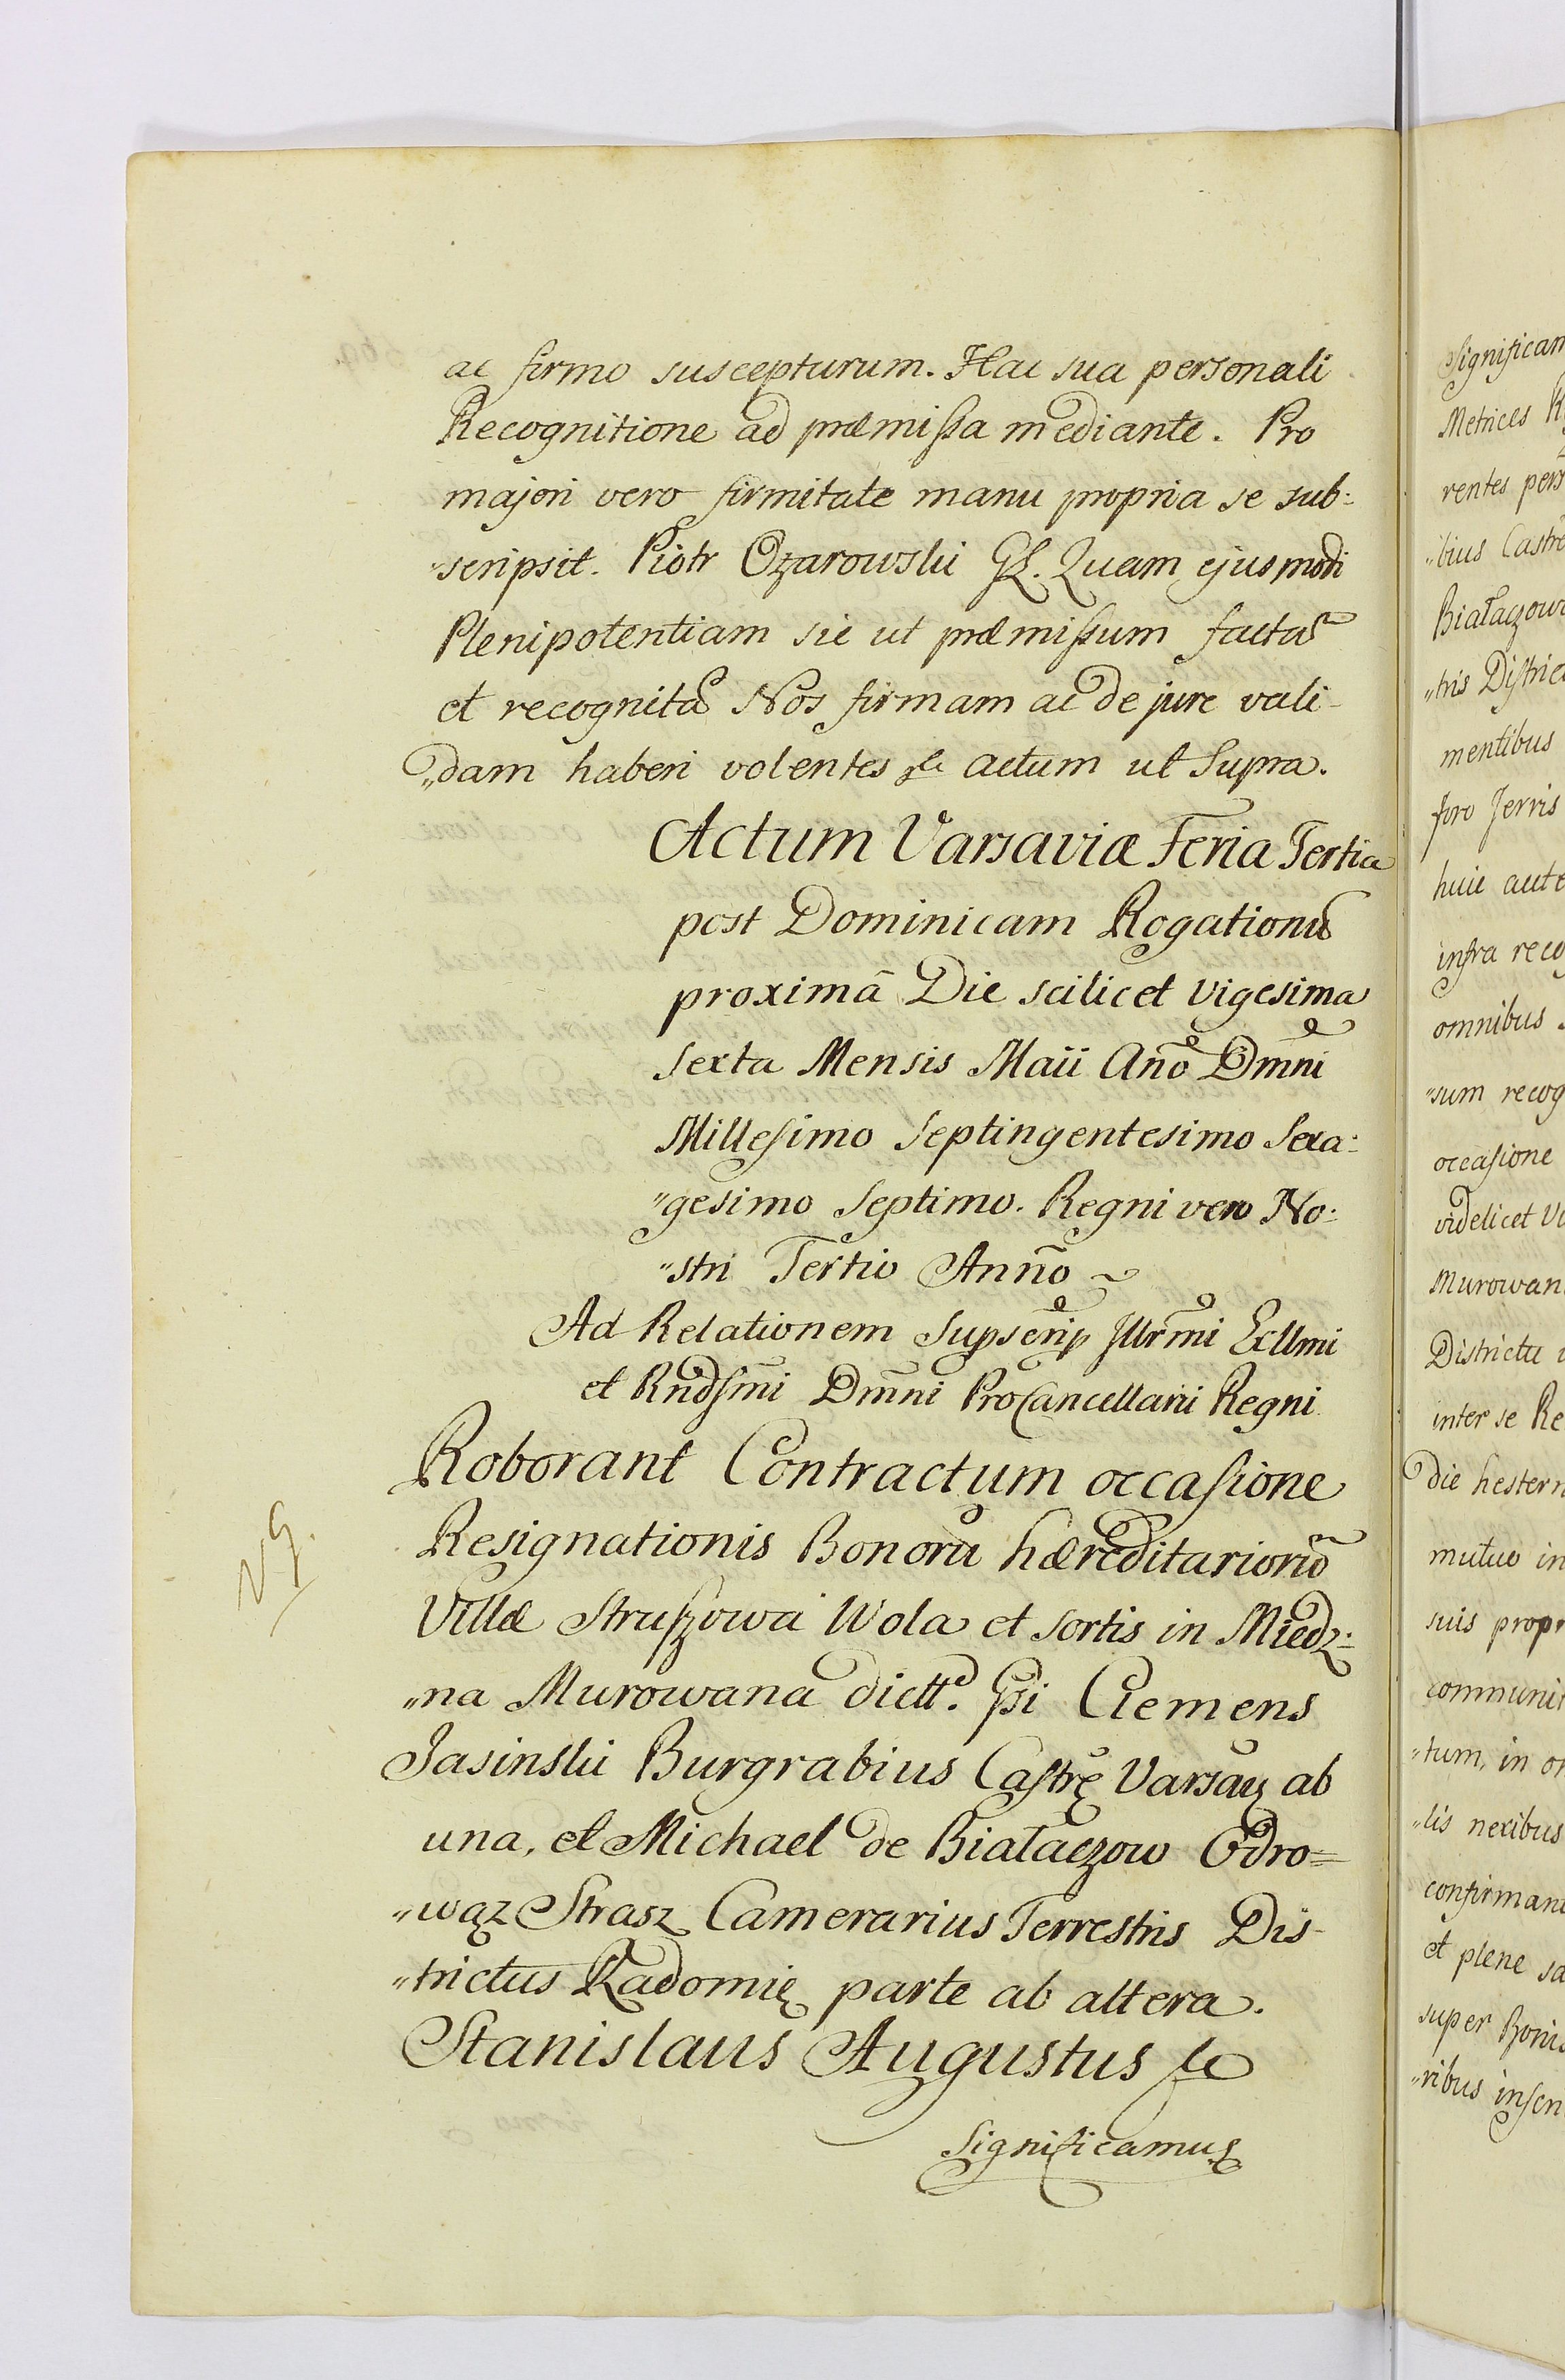 ac firmo suscepturum. Hac sua personali
Recognitione ad præmissa mediante. Pro
majori vero firmitate manu propria se sub:
"scripsit. Piotr Ozarowski Quam ejusmodi
Plenipotentiam sic ut præmissum factã
et recognitã Nos firmam ac de jure vali-
"dam haberi volentes actum ut Supra.
Actum Varsaviæ Feria Tertia
post Dominicam Rogationũ
proximã Die scilicet vigesima
Sexta Mensis Maii Año Dm̃ni
Millesimo Septingentesimo Sexa:
"gesimo Septimo. Regni vero No:
"stri Tertio Anño
Ad Relationem Supscrip Jllrm̃i Ecllmi
et Rñdsm̃i Dm̃ni ProCancellarii Regni
Roborant Contractum occasione
Resignationis Bonorũ hæreditariorũ
Villæ Struszowa Wola et Sortis in Miedz:
"na Murowana dictt. Clemens
Jasinski Burgrabius Castrę Varsaw ab
una, et Michael de Białaczow Odro=
"wąz Strasz Camerarius Terrestris Dis-
"trictus Radomię parte ab altera.
Stanislaus Augustus
Significamus
Significam
Metrices
rentes pers
"bius Castre
Białaczow
"tris Distric
mentibus
foro Jerris
huic
infra reco
omnibus
"sum recog
occasione
videlicet
Murowan
Districtu
inter se Re
die hestern
mutuo in
suis propr
communi
"tum, in
"lis nexibus
confirmant
et plene sa
super Boni
"ribus inscri